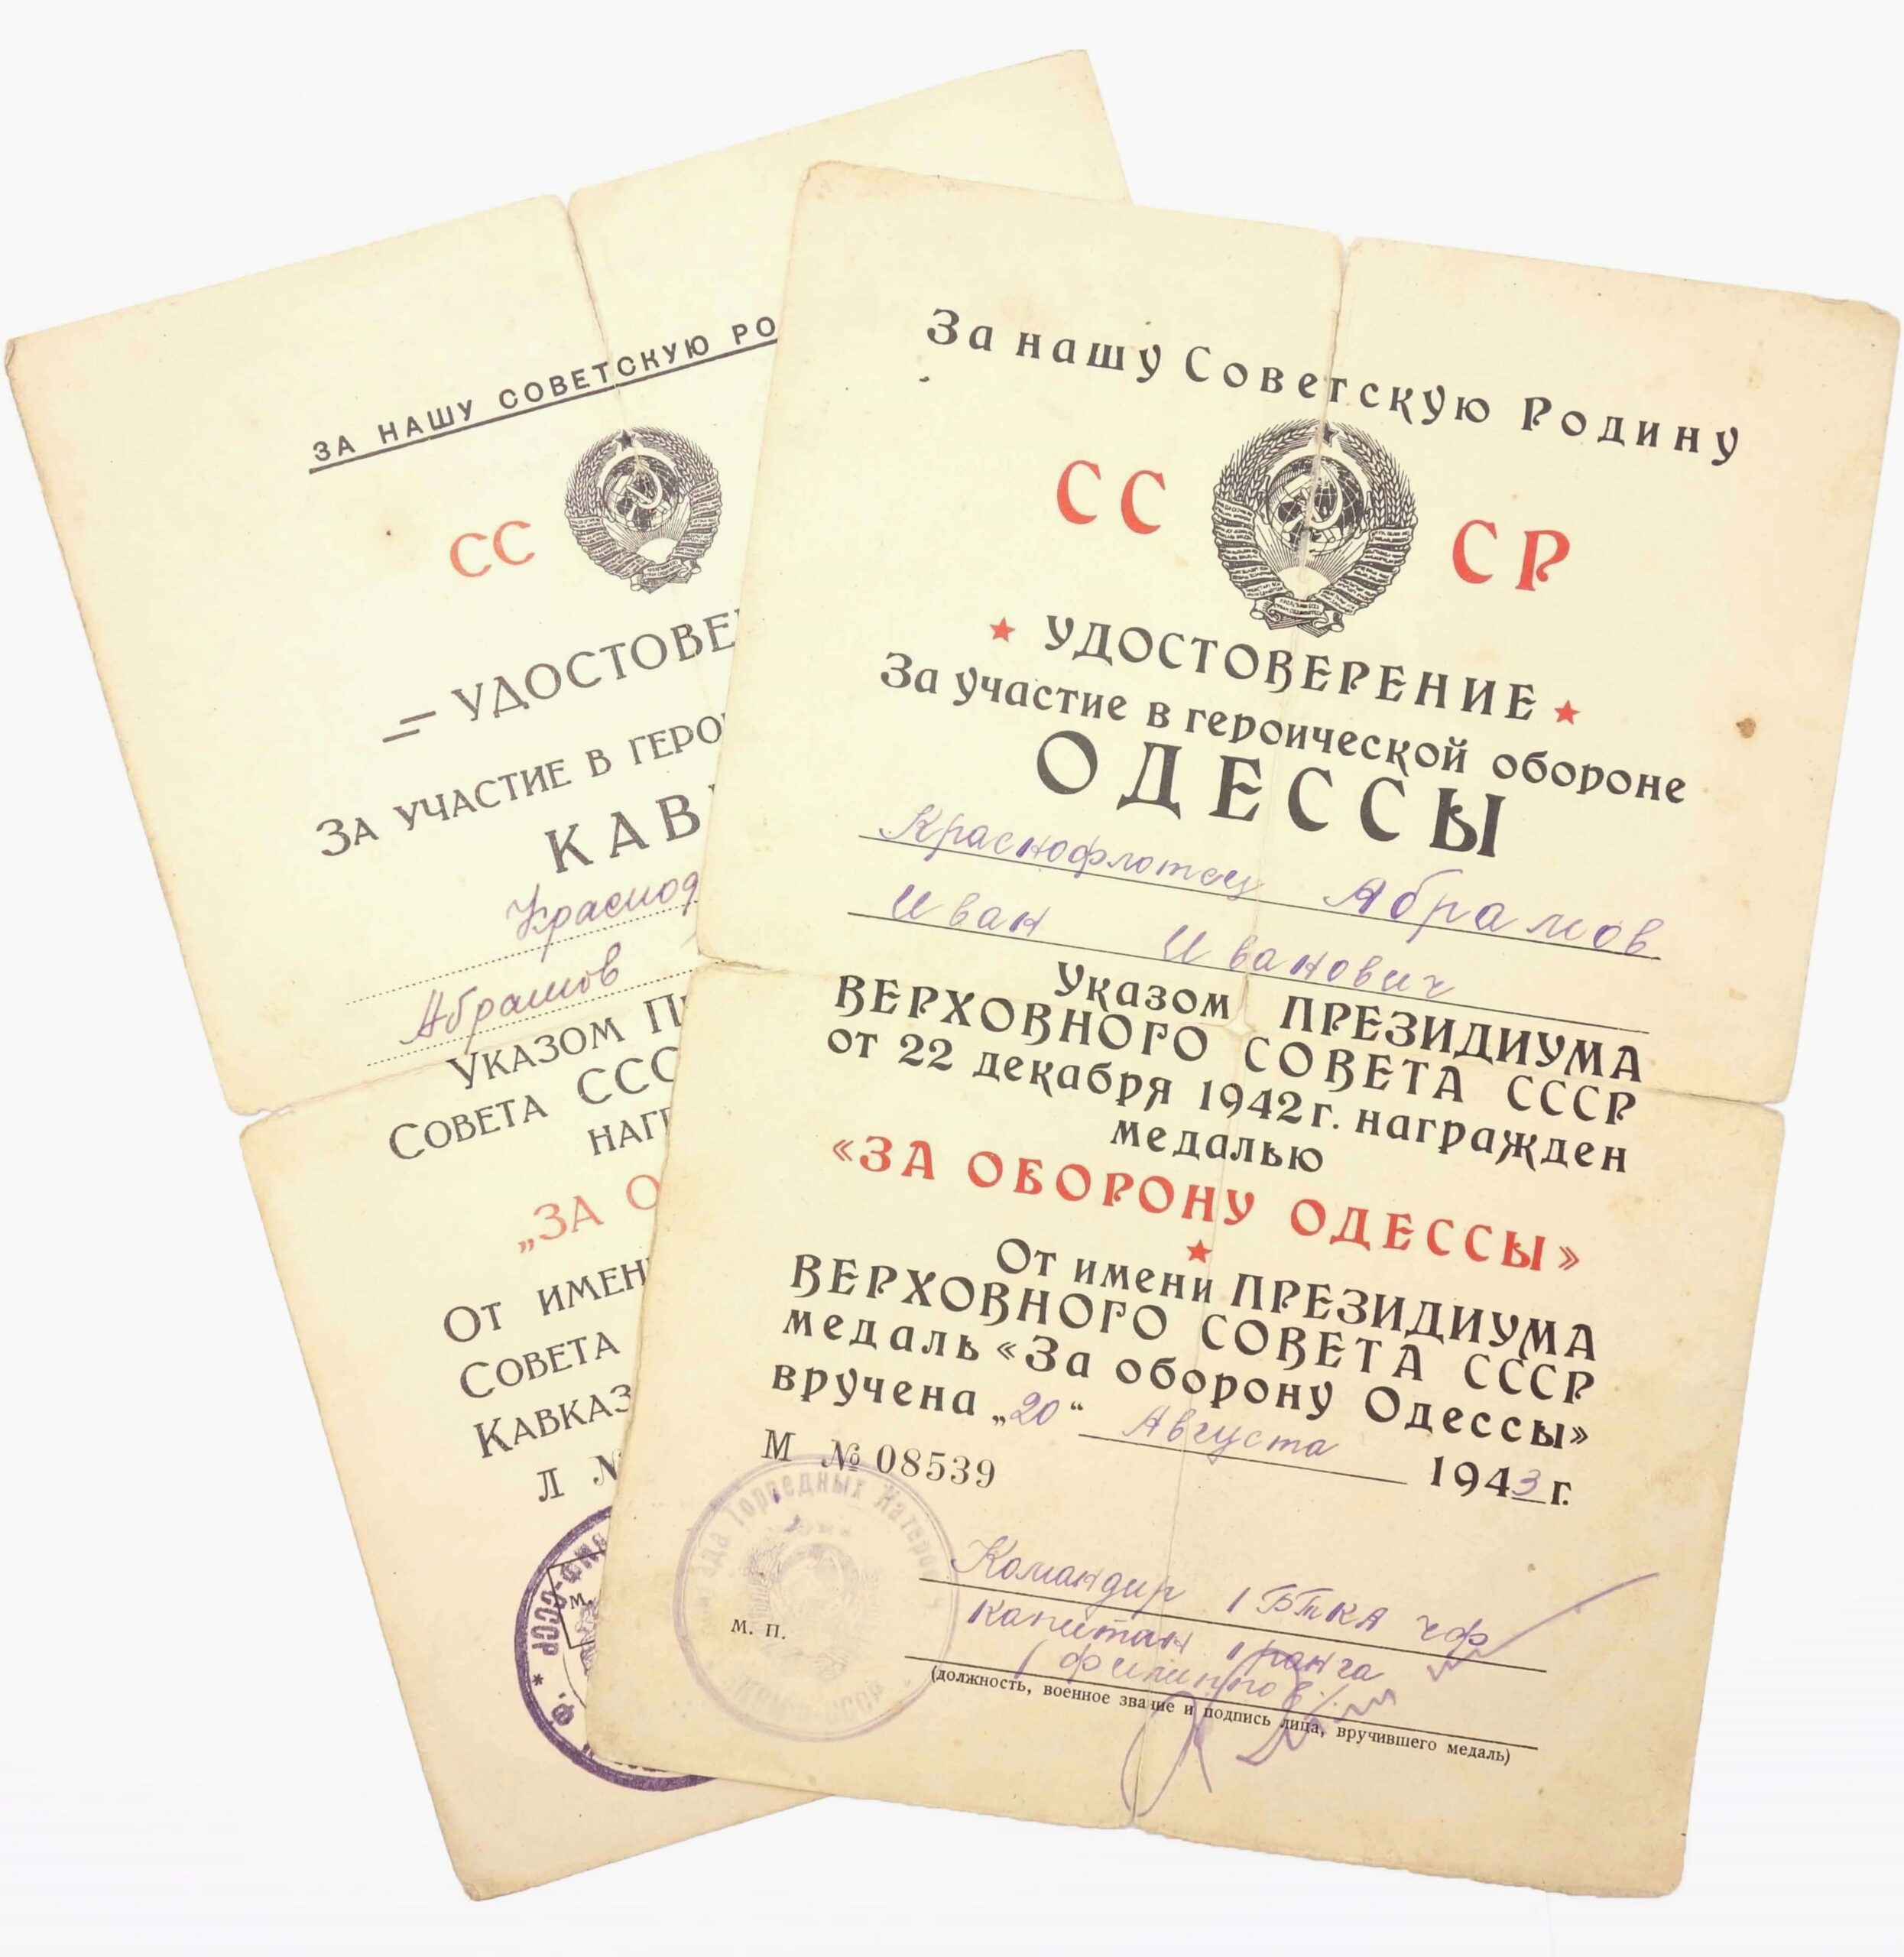 ЗА НАШУ СОВЕТСКУЮ РО
СС
УДОСТОВЕ
ЗА УЧАСТИЕ В ГЕРО
КАВ
Красноф
Абрамов
УКАЗОМ П
СОВЕТА ССС
НАГ
„ЗА О
ОТ ИМЕН
СОВЕТА
КАВКАЗ
Л №
М.
СССР * Ф.
За нашу Советскую Родину
СС СР
УДОСТОВЕРЕНИЕ
За участие в героической обороне
ОДЕССЫ
Краснофлотец Абрамов
Иван Иванович
Указом ПРЕЗИДИУМА
ВЕРХОВНОГО СОВЕТА СССР
от 22 декабря 1942 г. награжден
медалью
«ЗА ОБОРОНУ ОДЕССЫ»
От имени ПРЕЗИДИУМА
ВЕРХОВНОГО СОВЕТА СССР
медаль «За оборону Одессы»
вручена „20“ Августа 1943 г.
М № 08539
Торпедных Катеров
М. П.
Командир 1 БТКА ЧФ
капитан 1 ранга
(Филиппов)
(должность, военное звание и подпись лица, вручившего медаль)